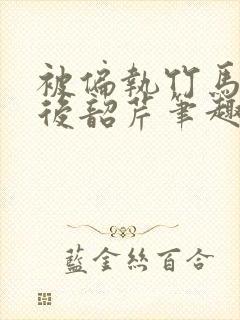 被偏執竹馬
後韶芹筆趣
藍金絲百合